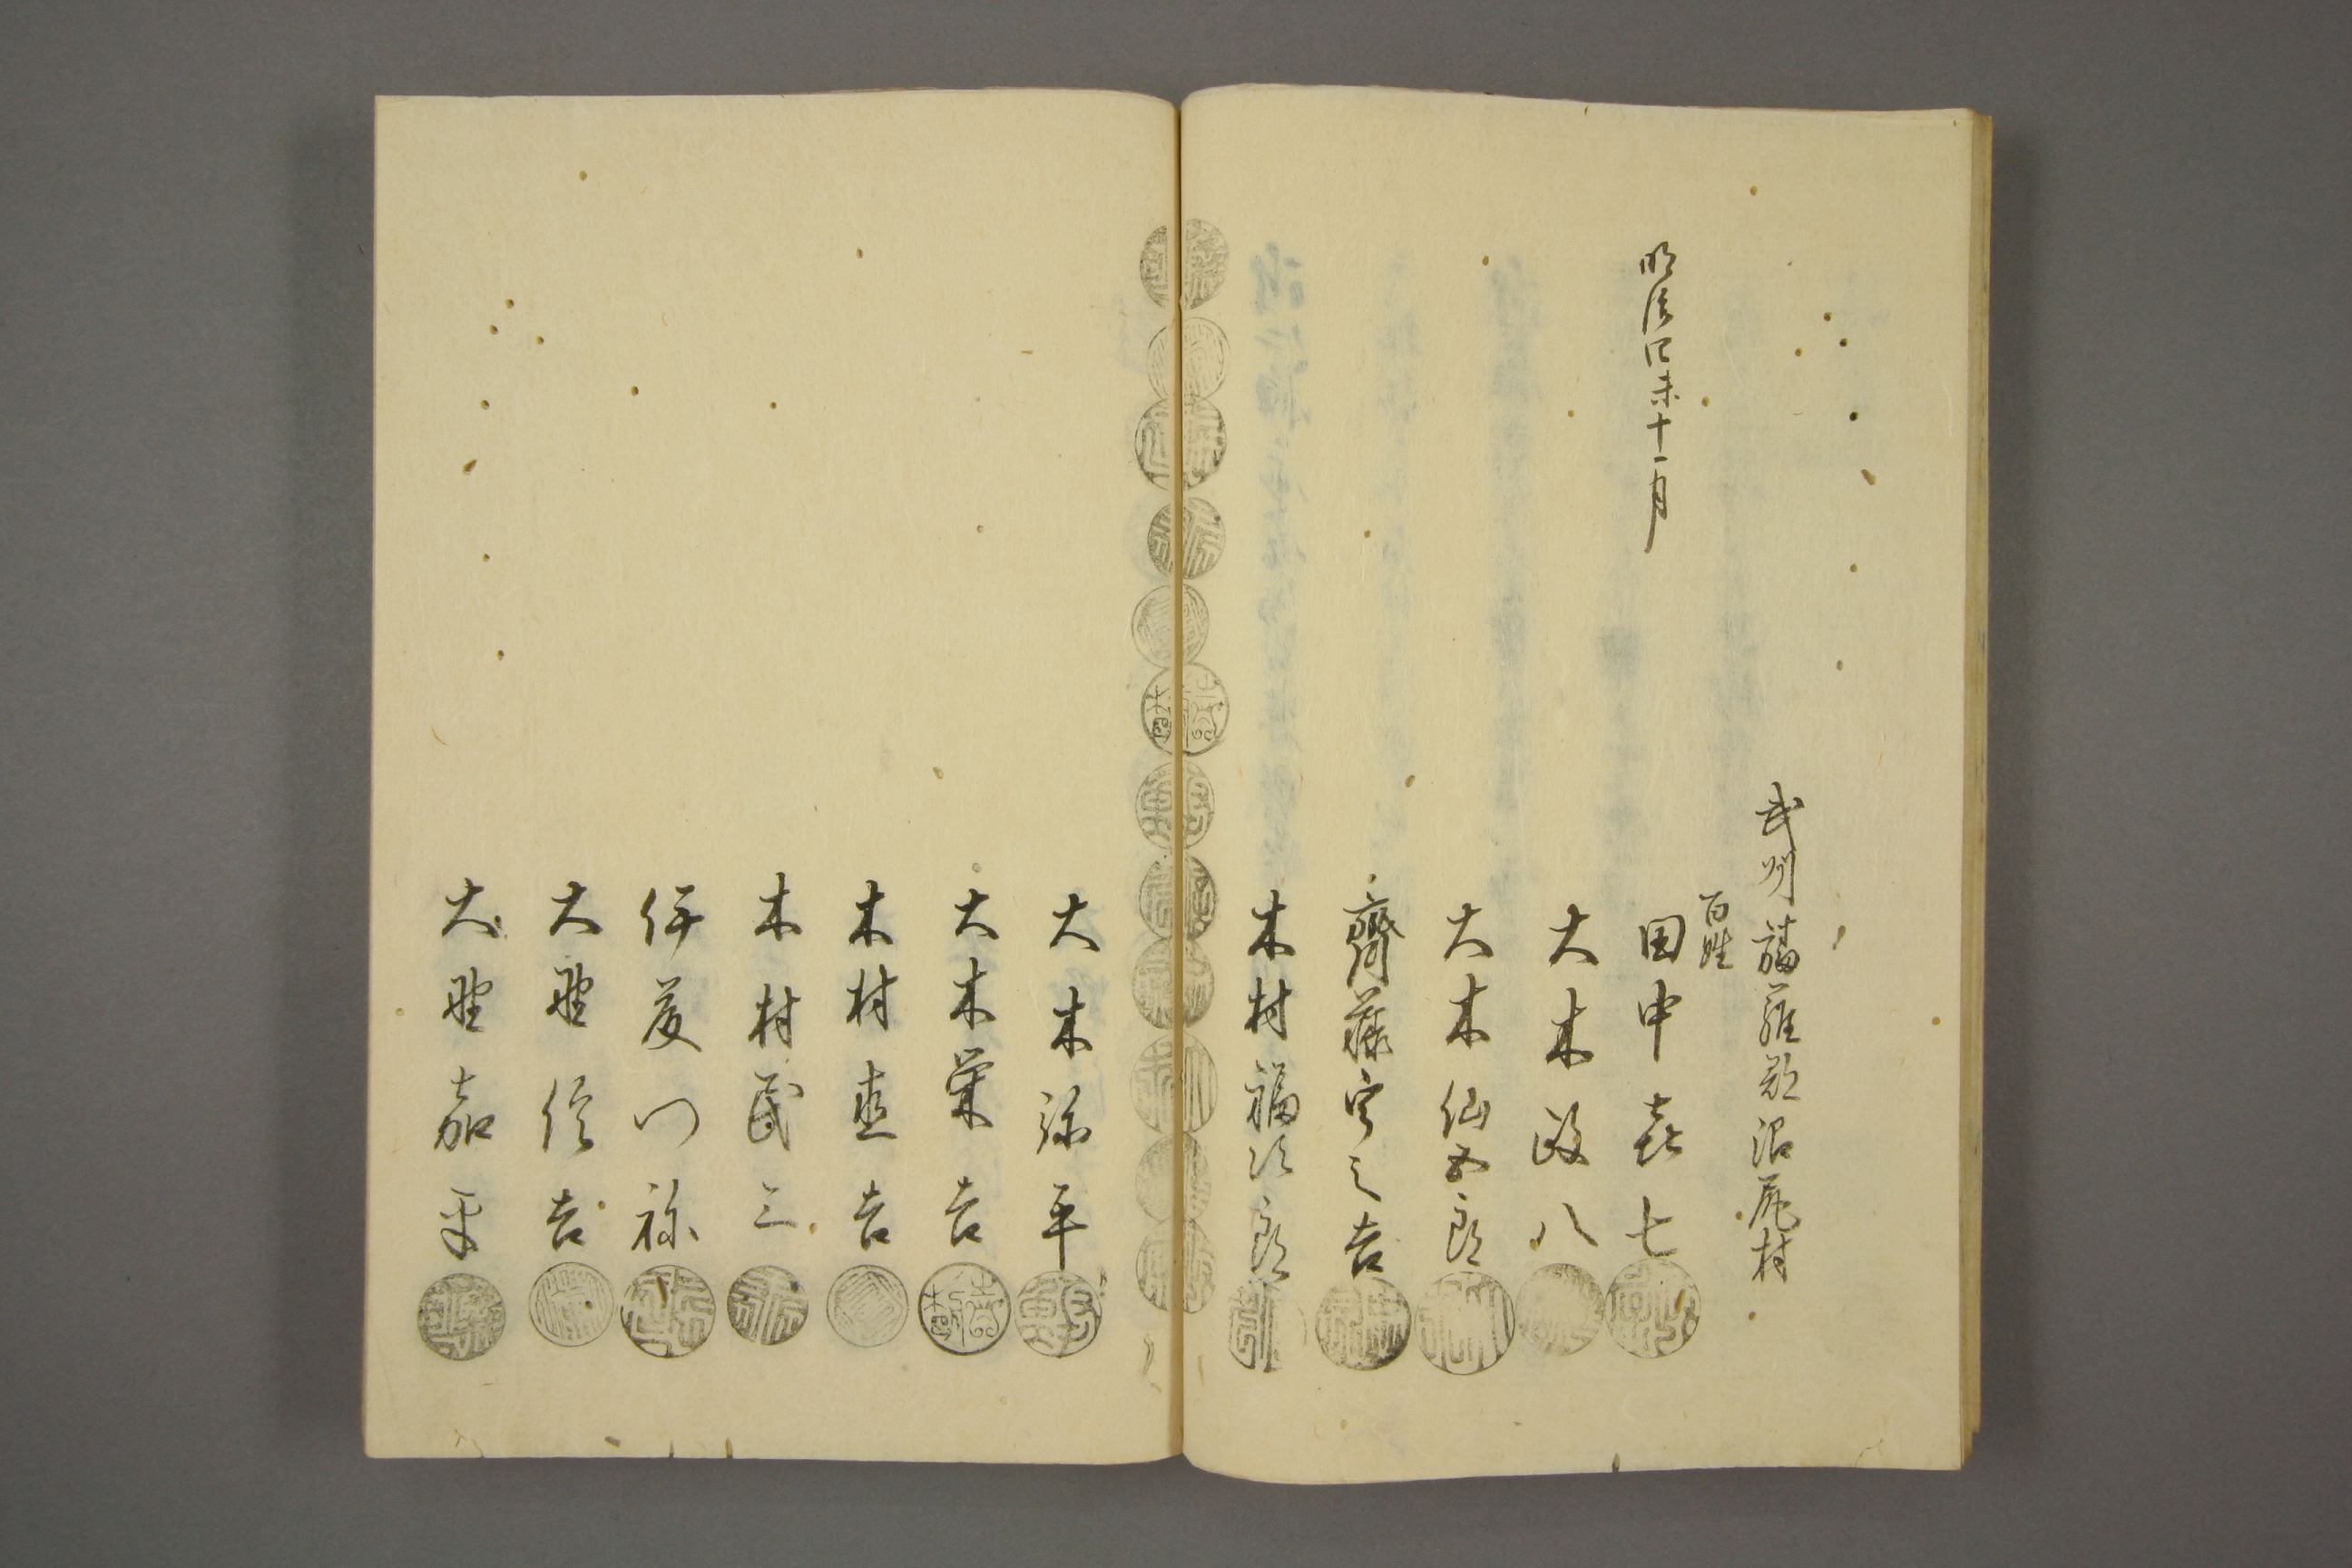 明治四未十一月
武州幡羅郡沼尻村
百姓
田中喜七
大木政八
大木仙五郎
齋藤定之吉
木村福次郎
大木弥平
大木栄吉
木村直吉
木村民三
伊
大野信吉
大野嘉平